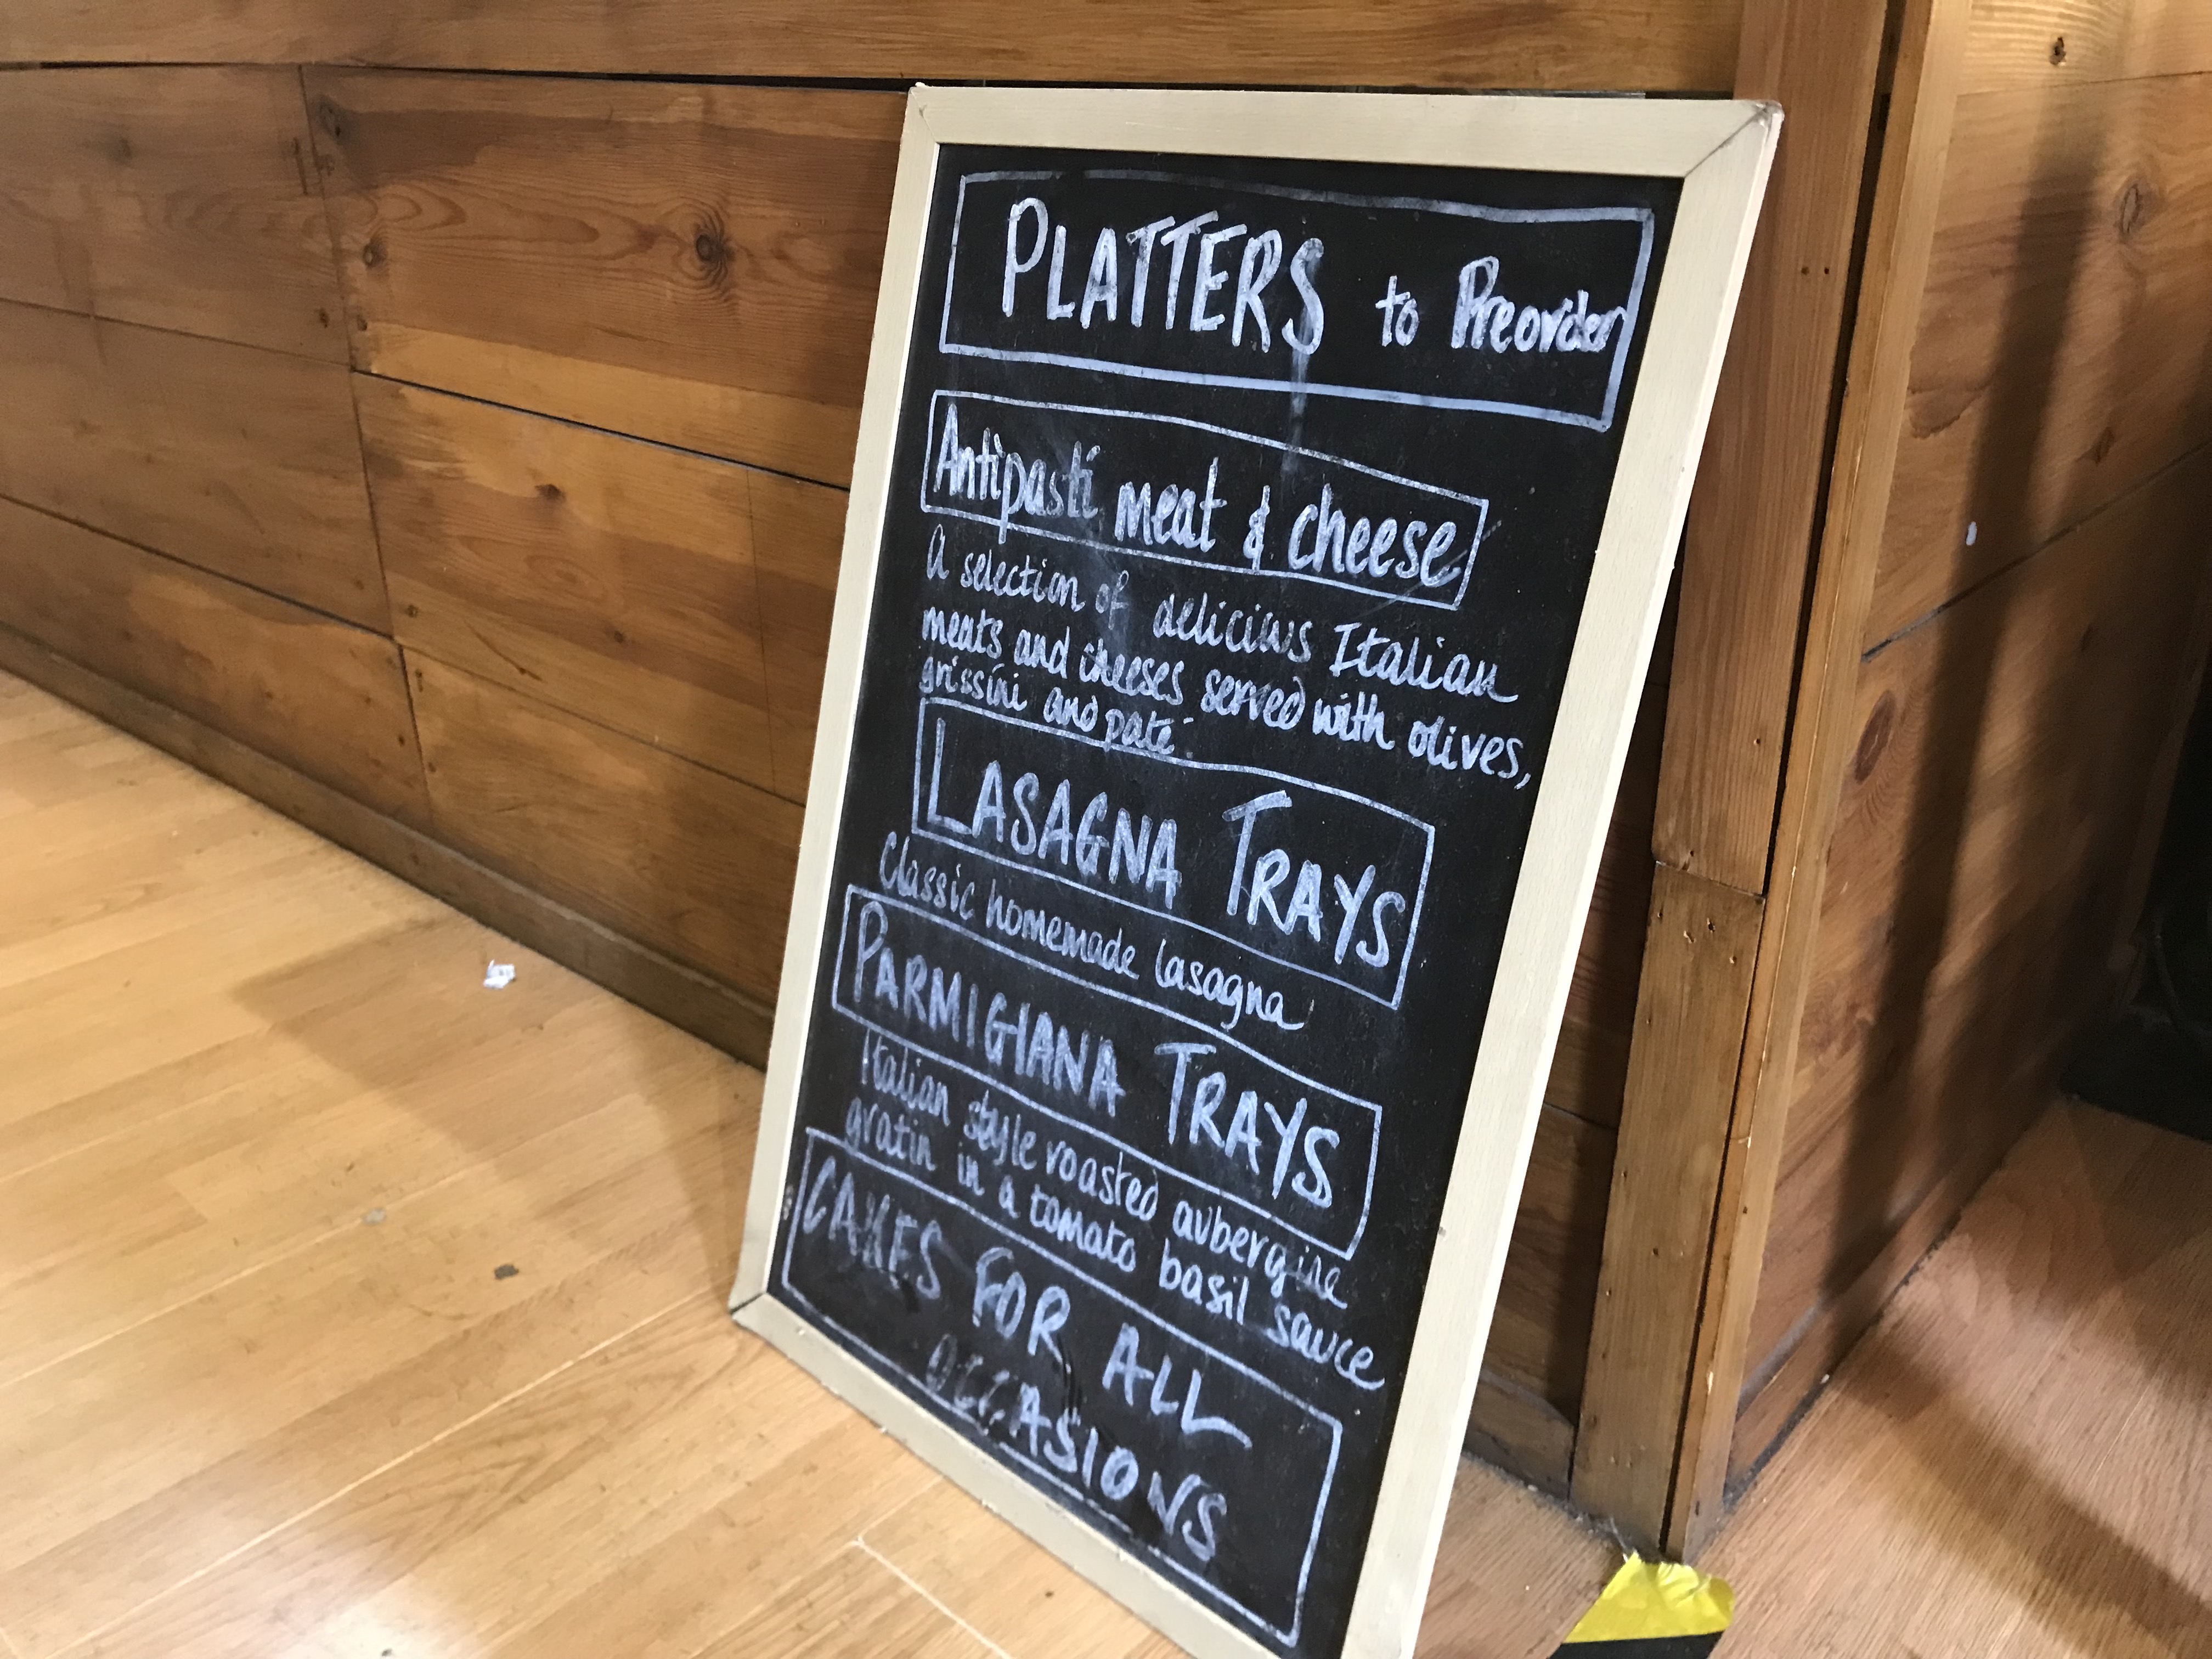 PLATTERS to Preorder
Antipasti meat & cheese
A selection of delicious Italian
meats and cheeses served with olives,
grissini and pate.
LASAGNA TRAYS
Classic homemade lasagna
PARMIGIANA TRAYS
Italian style roasted aubergine
gratin in a tomato basil sauce
CAKES FOR ALL
OCCASIONS